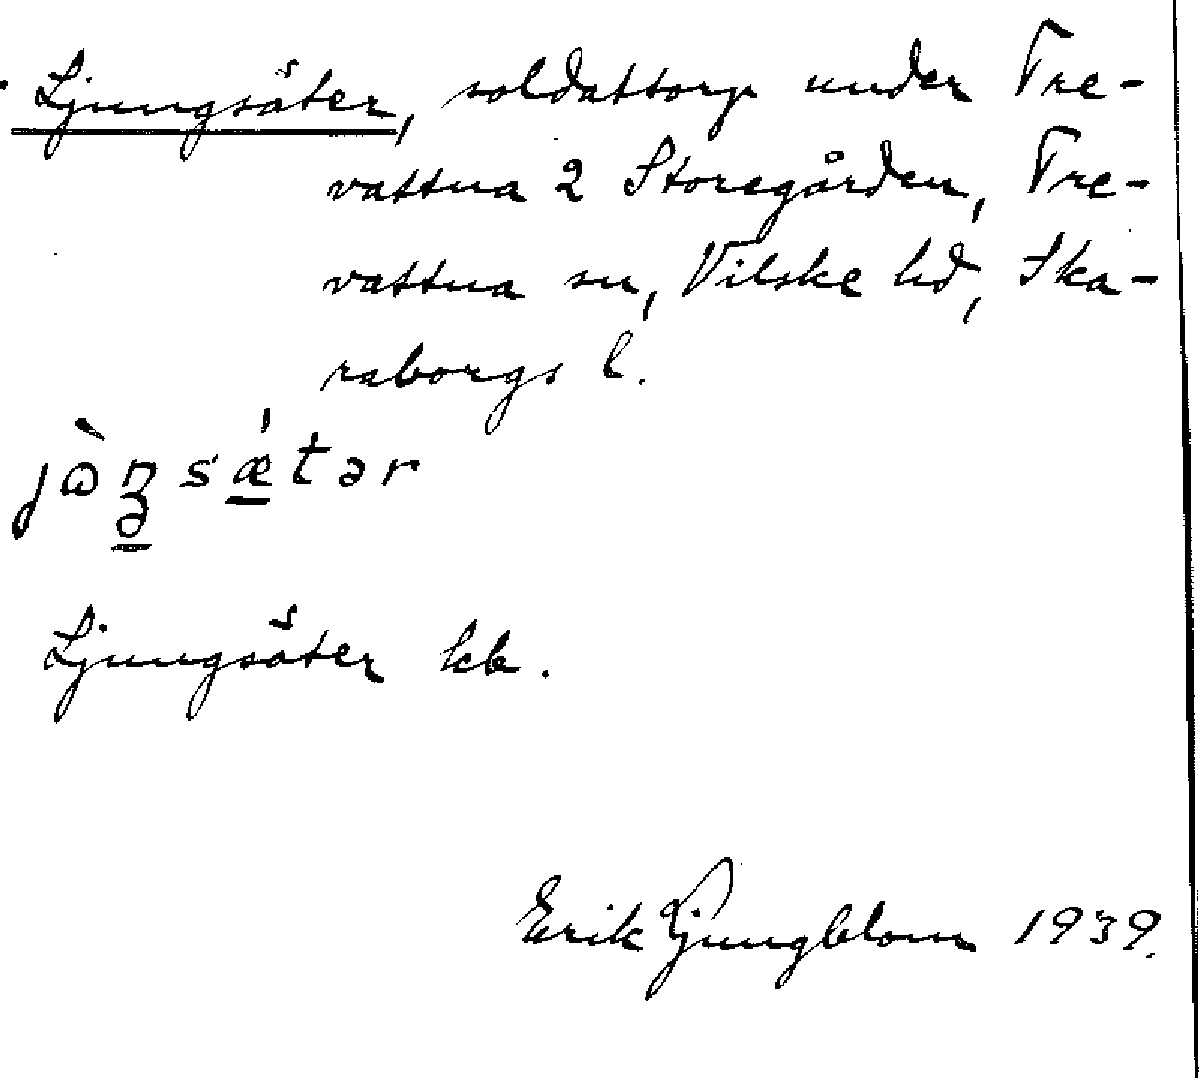 Ljungsäter, soldattorp under Tre-
vattna 2 Storegården, Tre-
vattna sn, Vilske hd, Ska-
raborgs l.
Ljungsäter kb.
Erik Ljungblom 1939.